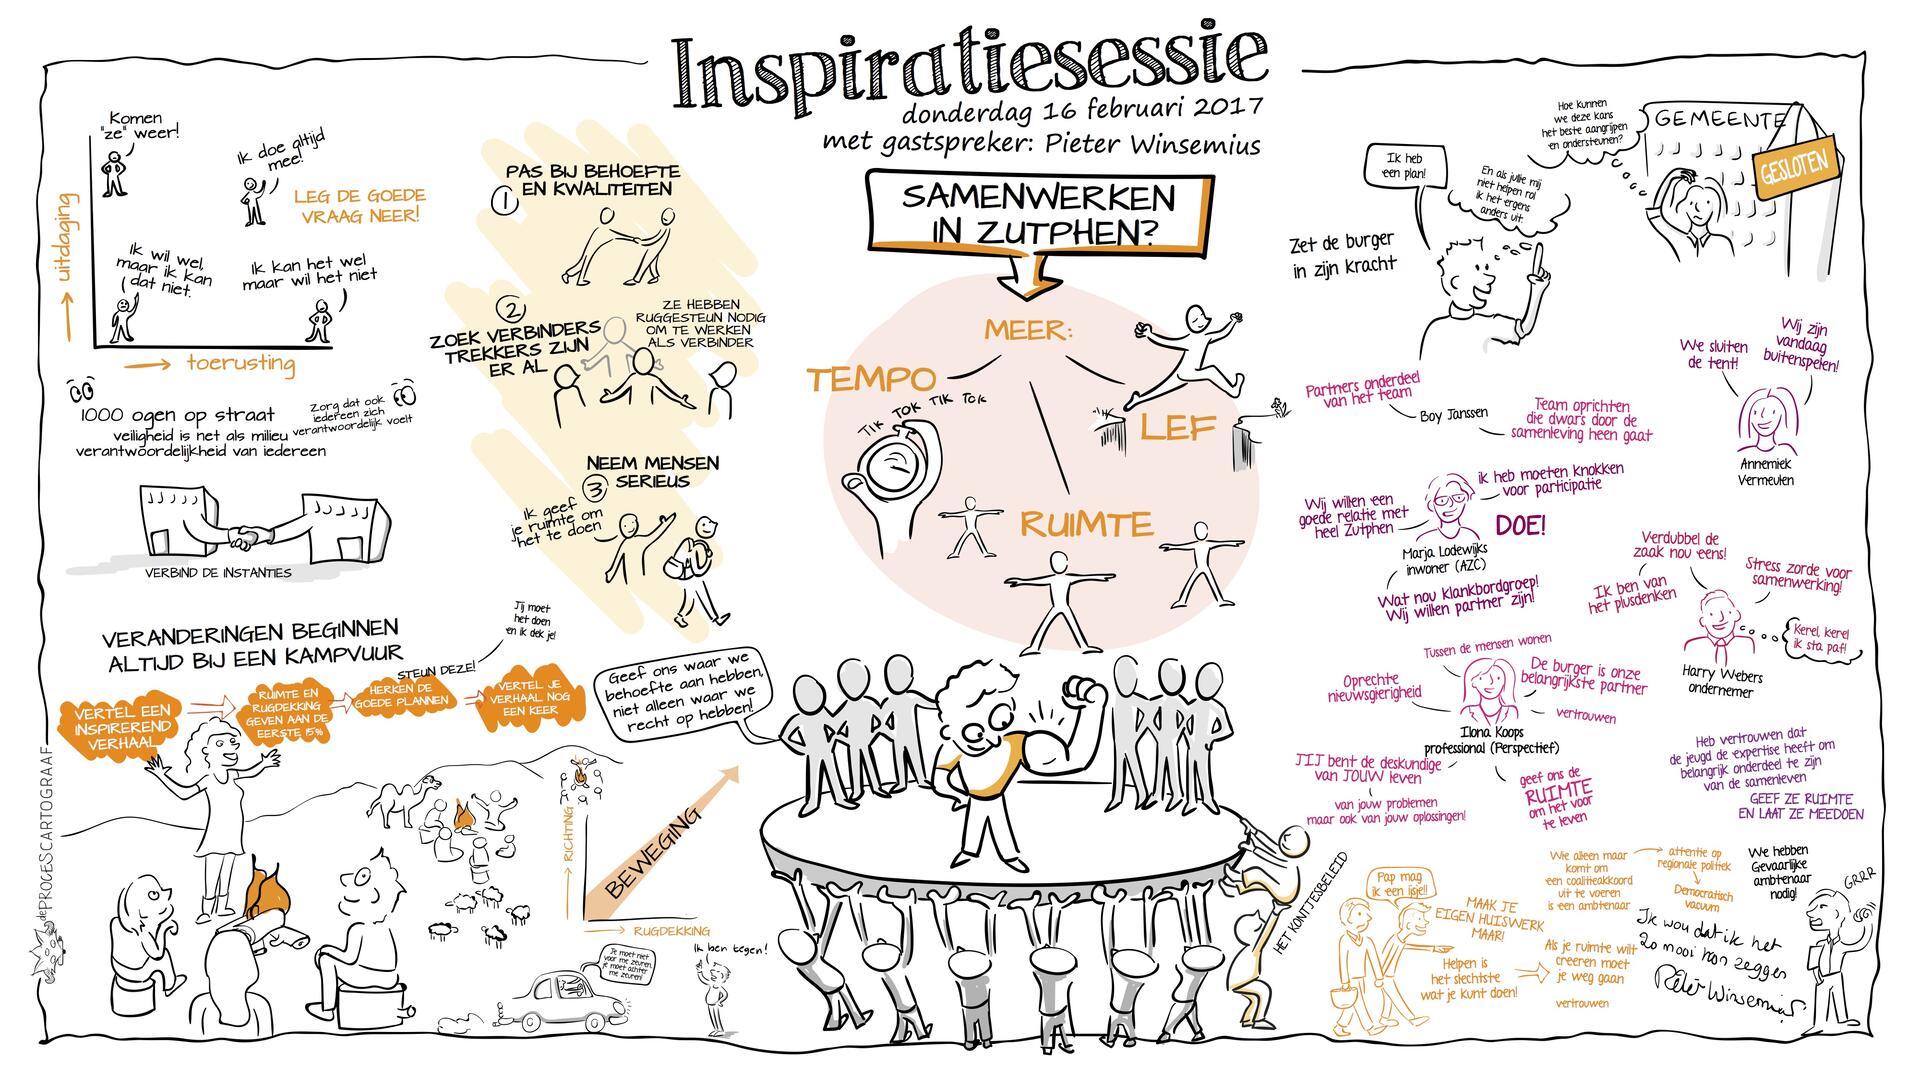 Inspiratiesessie
donderdag 16 februari 2017
met gastspreker: Pieter Winsemius
SAMENWERKEN
IN ZUTPHEN?
MEER:
TEMPO
TIK TOK TIK TOK
LEF
RUIMTE
Komen
"ze" weer!
Ik doe altijd
mee!
LEG DE GOEDE
VRAAG NEER!
uitdaging
Ik wil wel,
maar ik kan
dat niet.
Ik kan het wel
maar wil het niet
toerusting
1000 ogen op straat
veiligheid is net als milieu
verantwoordelijkheid van iedereen
Zorg dat ook
iedereen zich
verantwoordelijk voelt
VERBIND DE INSTANTIES
1
PAS BIJ BEHOEFTE
EN KWALITEITEN
2
ZOEK VERBINDERS
TREKKERS ZIJN
ER AL
ZE HEBBEN
RUGGESTEUN NODIG
OM TE WERKEN
ALS VERBINDER
NEEM MENSEN
SERIEUS
3
Ik geef
je ruimte om
het te doen
VERANDERINGEN BEGINNEN
ALTIJD BIJ EEN KAMPVUUR
STEUN DEZE!
Jij moet
het doen
en ik dek je!
VERTEL EEN
INSPIREREND
VERHAAL
RUIMTE EN
RUGDEKKING
GEVEN AAN DE
EERSTE 15%
HERKEN DE
GOEDE PLANNEN
VERTEL JE
VERHAAL NOG
EEN KEER
Geef ons waar we
behoefte aan hebben,
niet alleen waar we
recht op hebben!
RICHTING
BEWEGING
RUGDEKKING
Je moet niet
voor me zeuren,
je moet achter
me zeuren!
Ik ben tegen!
dePROCESCARTOGRAAF
HET KONTJESBELEID
Zet de burger
in zijn kracht
Ik heb
een plan!
En als jullie mij
niet helpen rol
ik het ergens
anders uit.
Hoe kunnen
we deze kans
het beste aangrijpen
en ondersteunen?
GEMEENTE
GESLOTEN
We sluiten
de tent!
Wij zijn
vandaag
buitenspelen!
Annemiek
Vermeulen
Partners onderdeel
van het team
Boy Janssen
Team oprichten
die dwars door de
samenleving heen gaat
Wij willen een
goede relatie met
heel Zutphen
ik heb moeten knokken
voor participatie
DOE!
Marja Lodewijks
inwoner (AZC)
Wat nou klankbordgroep!
Wij willen partner zijn!
Verdubbel de
zaak nou eens!
Ik ben van
het plusdenken
Stress zorde voor
samenwerking!
Kerel, kerel
ik sta paf!
Harry Webers
ondernemer
Tussen de mensen wonen
Oprechte
nieuwsgierigheid
De burger is onze
belangrijkste partner
vertrouwen
Ilona Koops
professional (Perspectief)
JIJ bent de deskundige
van JOUW leven
van jouw problemen
maar ook van jouw oplossingen!
geef ons de
RUIMTE
om het voor
te leven
Heb vertrouwen dat
de jeugd de expertise heeft om
belangrijk onderdeel te zijn
van de samenleven
GEEF ZE RUIMTE
EN LAAT ZE MEEDOEN
Pap mag
ik een ijsje!!
MAAK JE
EIGEN HUISWERK
MAAR!
Helpen is
het slechtste
wat je kunt doen!
Wie alleen maar
komt om
een coalitieakkoord
uit te voeren
is een ambtenaar
attentie op
regionale politiek
Democratisch
vacuum
Als je ruimte wilt
creeren moet
je weg gaan
vertrouwen
We hebben
Gevaarlijke
ambtenaar
nodig!
GRRR
Ik wou dat ik het
zo mooi kon zeggen
Pieter Winsemius